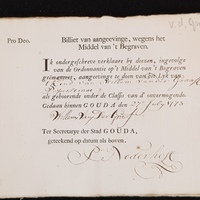 v.d. 
Pro Deo.
Billiet van aangeevinge, wegens het
Middel van 't Begraven.
IK ondergeschreve verklaare by deezen, ingevolge
van de Ordonnantie op 't Middel van 't Begraven
geimaneert, aangeevinge te doen van het Lyk van
als gehoorende onder de Classis van d' onvermogende.
Gedaan binnen GOUDA den 27 July 1775
Willem van der
Ter Secretarye der Stad GOUDA,
geteekend op datum als boven.